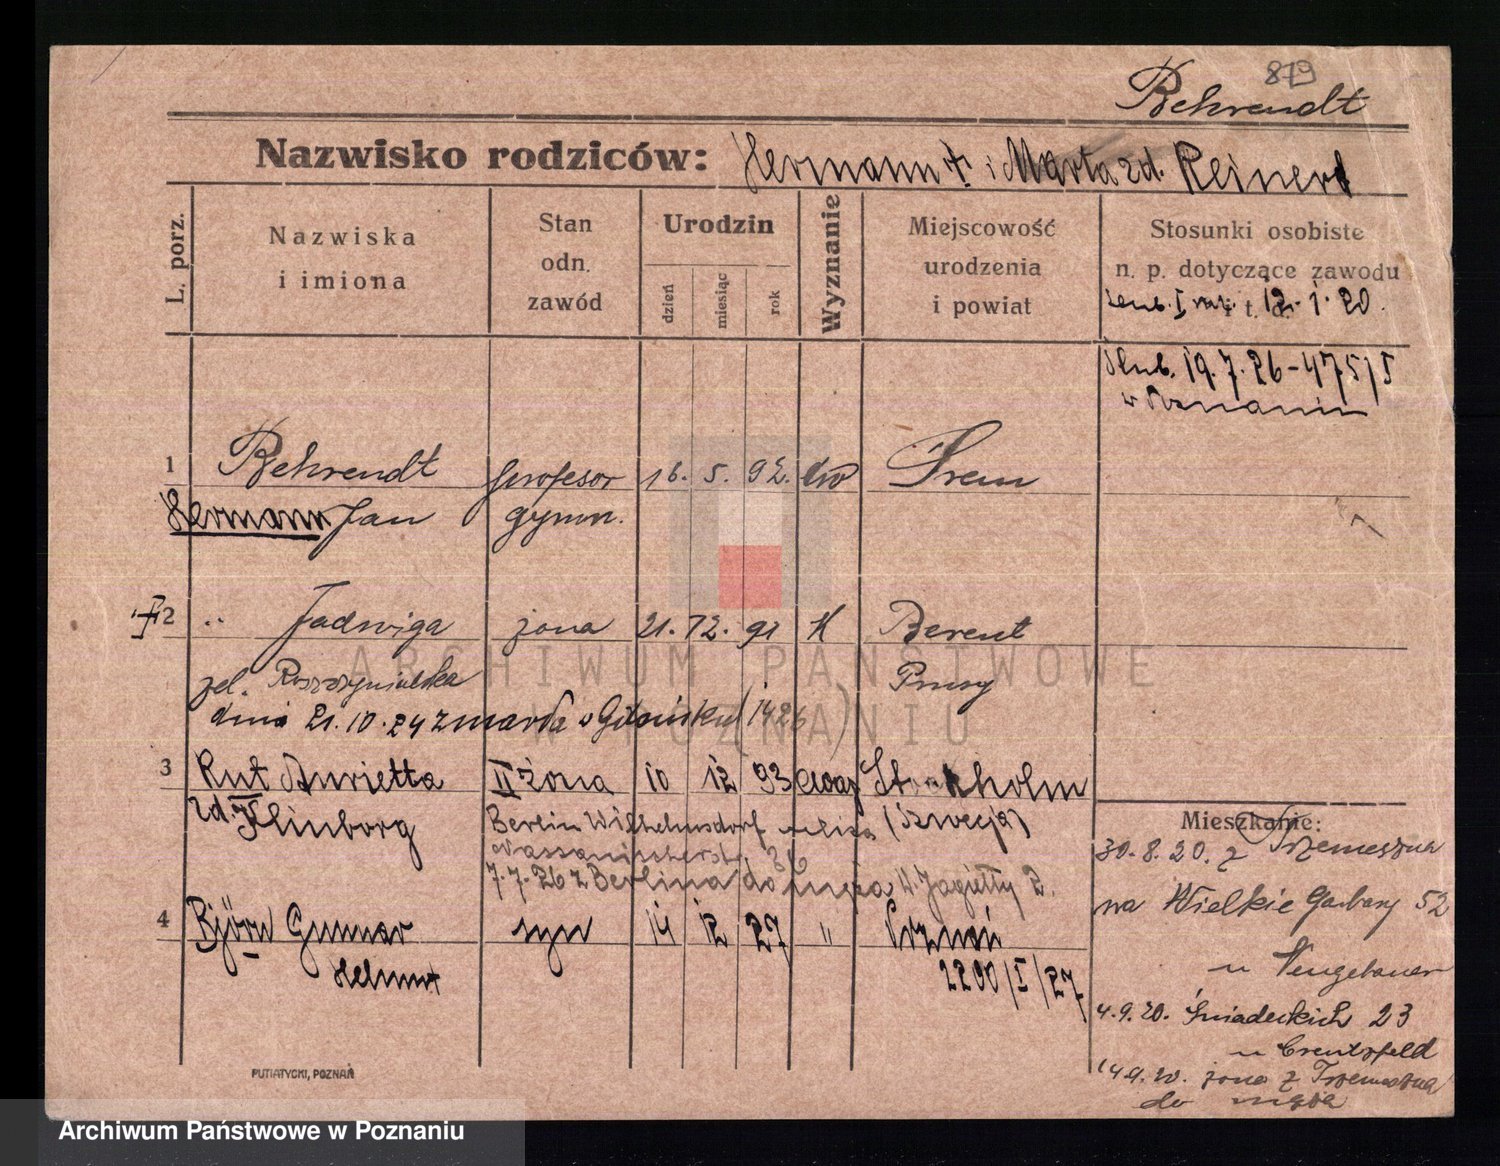 879
Behrendt
Nazwisko rodziców: Hermann † i Marta zd. Reinert
L. porz.
Nazwiska i imiona
Stan odn. zawód
Urodzin
dzień miesiąc rok
Wyznanie
Miejscowość urodzenia i powiat
Stosunki osobiste
n. p. dotyczące zawodu
i t. d. 12. 1. 20.
ślub. 19.7.26 - 475/I
w Poznaniu
1 Behrendt profesor 16. 5. 92. ew Śrem
Hermann Jan gymn.
† 2 " Jadwiga żona 21. 12. 91 K Berent
zel. Prusy
dnia 21.10.24 zmarła w Gdańsku (1426)
3 Rut Anrietta II żona 10 12 93 ewang Stockholm
zd. Klinborg (Szwecja)
Berlin Wilhelmsdorf
Nassauischerstr. 36
7.7.26 z Berlina do męża W. Jagiełły 2.
4 Björn Gunnar syn 14 12 27 " Poznań
Helmut 2290/I/27
Mieszkanie:
30.8.20. z Trzemeszna
na Wielkie Garbary 52
u Neugebauer
4.9.20. Śniadeckich 23
u Creutzfeld
14.9.20. żona z Trzemeszna
do męża
PUTIATYCKI, POZNAŃ
ARCHIWUM PAŃSTWOWE
W POZNANIU
Archiwum Państwowe w Poznaniu